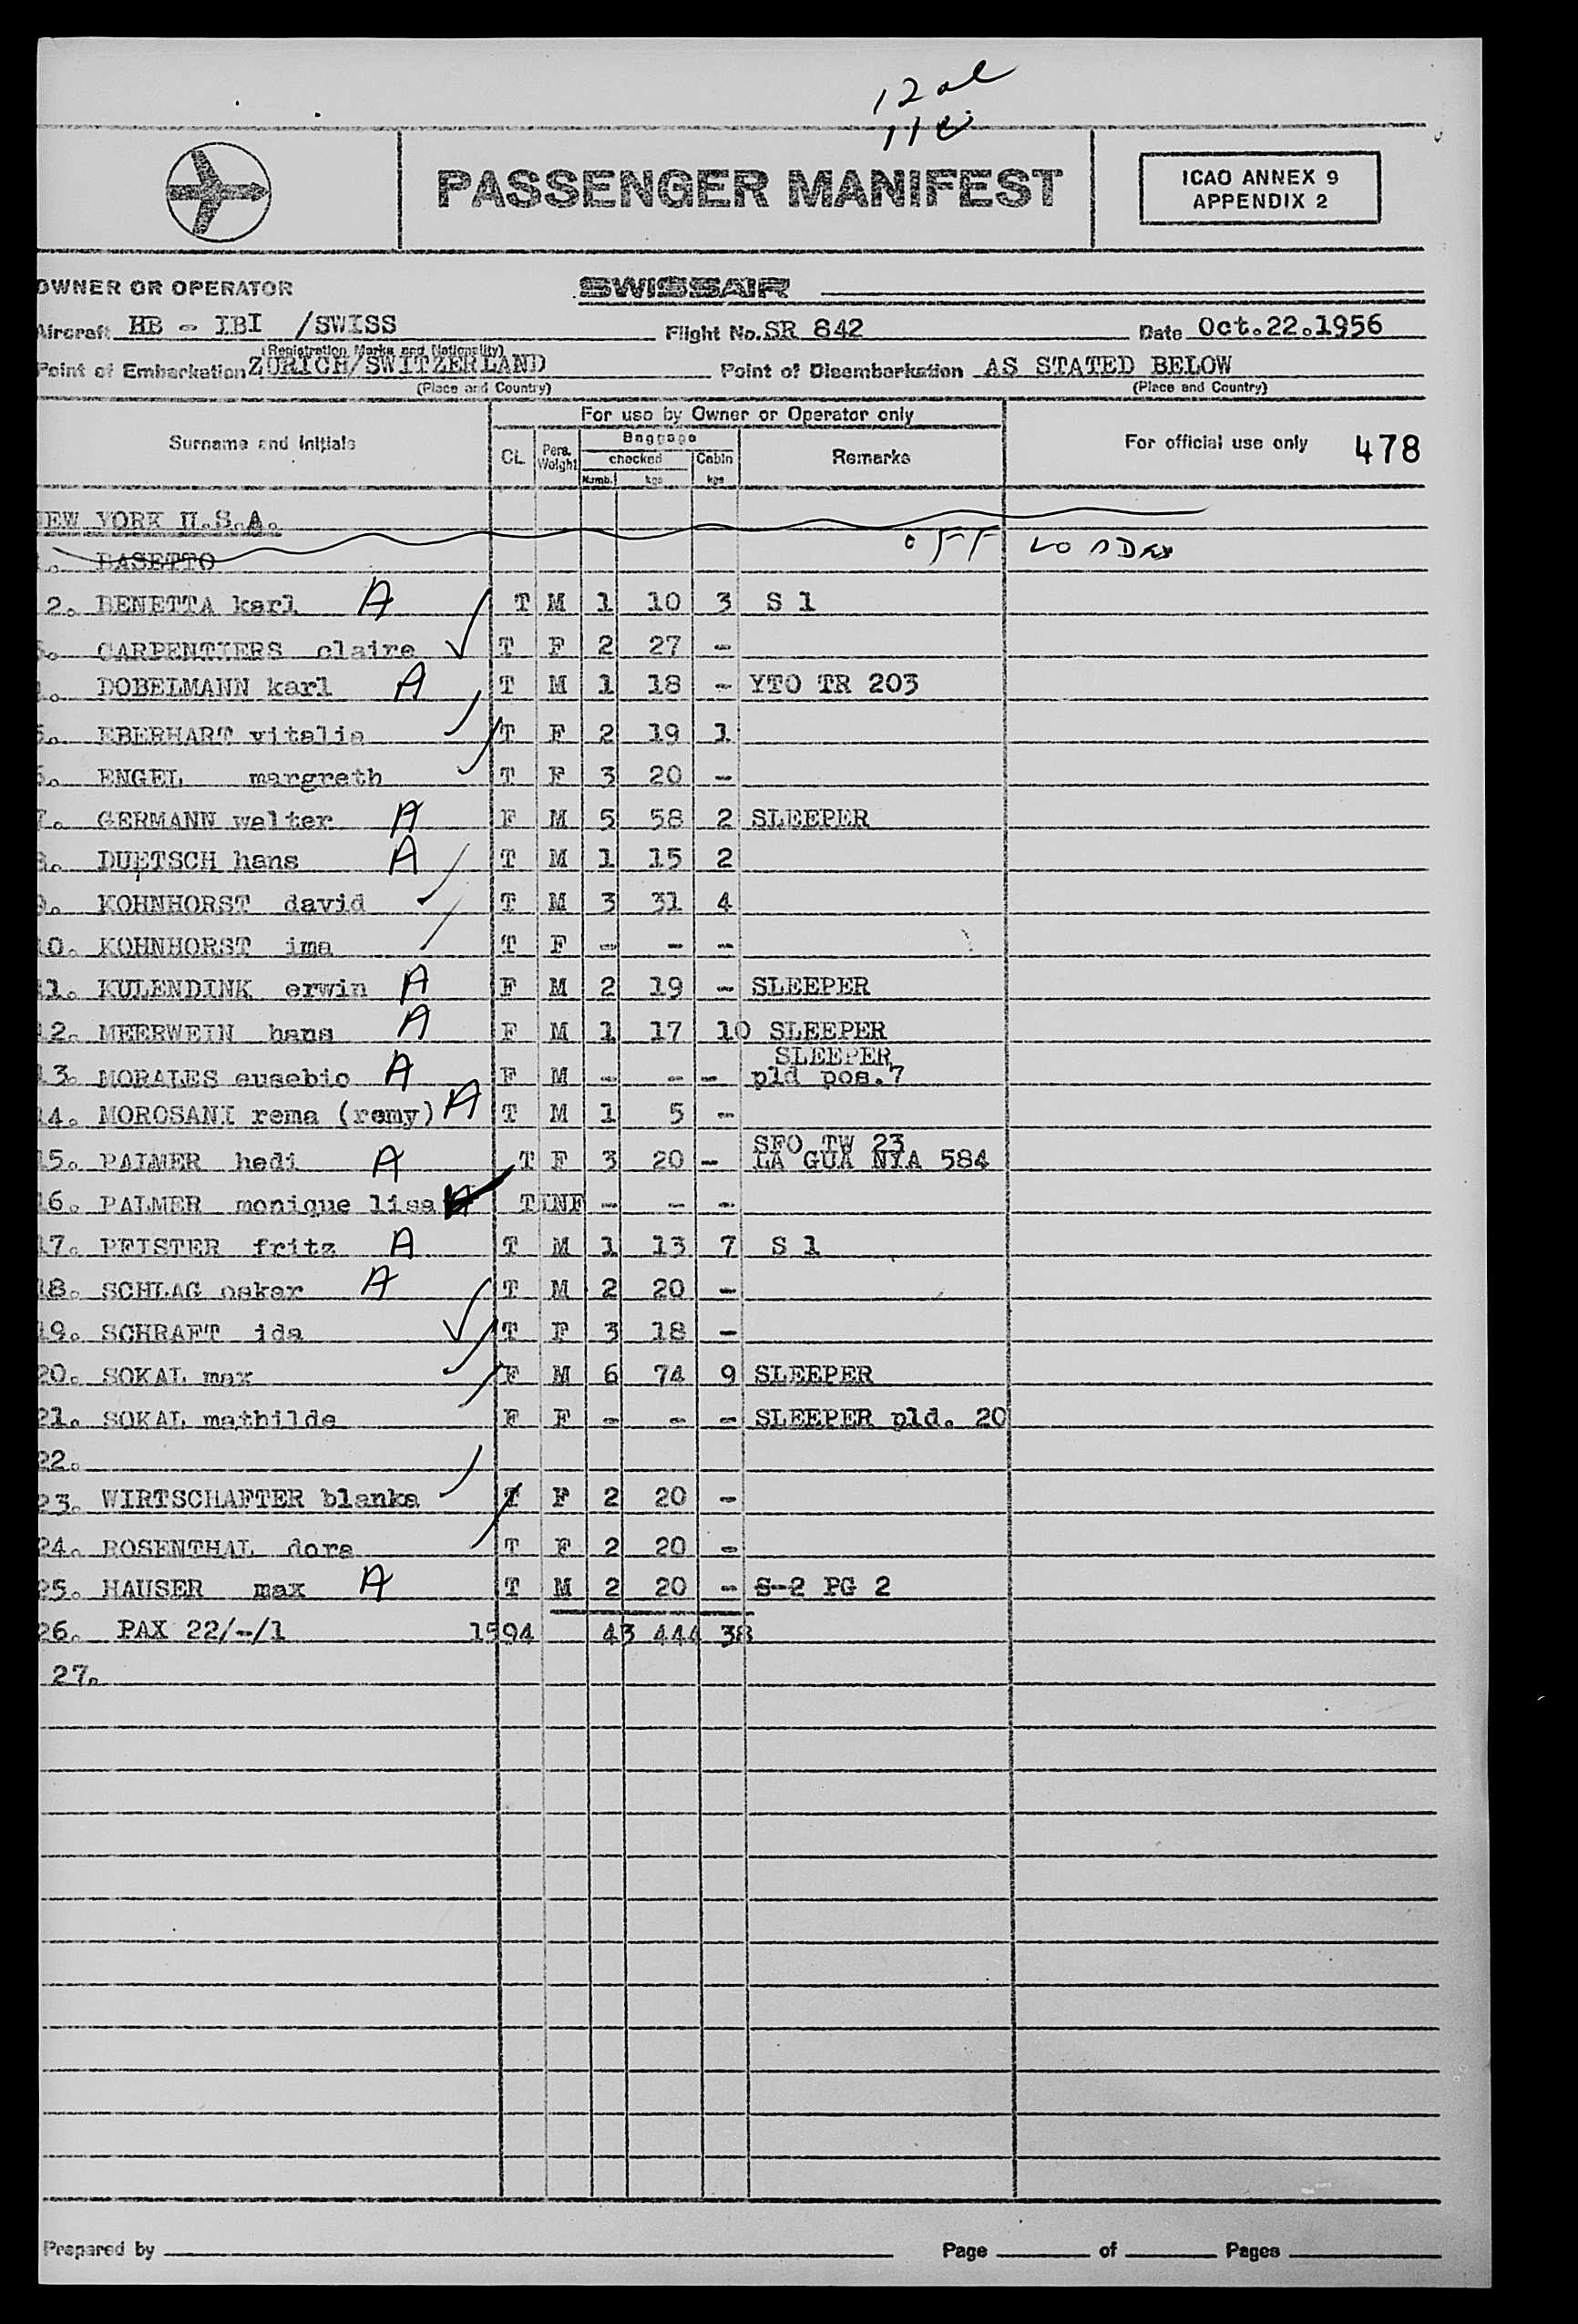 12 al
11 c
PASSENGER MANIFEST
ICAO ANNEX 9
APPENDIX 2
OWNER OR OPERATOR SWISSAIR
Aircraft HB - IBI /SWISS Flight No. SR 842 Date Oct.22.1956
(Registration Marks and Nationality)
Point of Embarkation ZURICH/SWITZERLAND Point of Disembarkation AS STATED BELOW
(Place and Country) (Place and Country)
For use by Owner or Operator only
Surname and Initials CL Pers. Weight Baggage checked Numb. kgs Cabin kgs Remarks For official use only 478
EW YORK U.S.A.
. BASETTO OFF LOADED
2. BENETTA karl A T M 1 10 3 S 1
. CARPENTIERS claire T F 2 27 -
. DOBELMANN karl A T M 1 18 - YTO TR 203
5. EBERHART vitalia T F 2 19 1
6. ENGEL margreth T F 3 20 -
7. GERMANN walter A F M 5 58 2 SLEEPER
8. DUETSCH hans A T M 1 15 2
9. KOHNHORST david T M 3 31 4
10. KOHNHORST ima T F - - -
11. KULENDINK erwin A F M 2 19 - SLEEPER
12. MEERWEIN hans A F M 1 17 10 SLEEPER
SLEEPER
13. MORALES eusebio A F M - - - pld pos.7
14. MOROSANI rema (remy) A T M 1 5 -
SFO TW 23
15. PALMER hedi A T F 3 20 - LA GUA NYA 584
16. PALMER monique lisa A T INF - - -
17. PFISTER fritz A T M 1 13 7 S 1
18. SCHLAG oskar A T M 2 20 -
19. SCHRAFT ida T F 3 18 -
20. SOKAL max F M 6 74 9 SLEEPER
21. SOKAL mathilde F F - - - SLEEPER pld. 20
22.
23. WIRTSCHAFTER blanka T F 2 20 -
24. ROSENTHAL dora T F 2 20 -
25. HAUSER max A T M 2 20 - S-2 PG 2
26. PAX 22/-/1 1594 43 444 38
27.
Prepared by Page of Pages